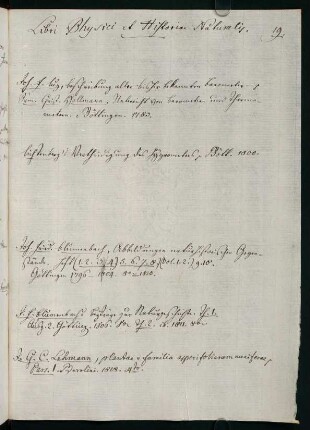 Libri Physici et Historiae Naturalis.
19.
Joh. F. Luz, beschreibung aller bisher bekannten barometer
Sam. Christ. Hollmann, Unterricht von barometer und Thermo-
metern, Göttingen 1783.
Lichtenberg's Vertheidigung des Hygrometers, Gött. 1800.
Joh. Fried. blumenbach, Abbildungen naturhistorischer Gegen-
stände. Heft 1. 2. 3. 4. 5. 6. 7. 8. 9. 10.
Göttingen 1796. 1810.
J. F. blumenbach's beyträge zur Naturgeschichte. Th. 1.
Ausg. 2. Göttingen. 1806. Th. 2. 1811. 8vo.
J. G. C. Lehmann, plantae e familia asperifoliarum nuciferae,
Pars. 1. Berolini 1818. 4to.